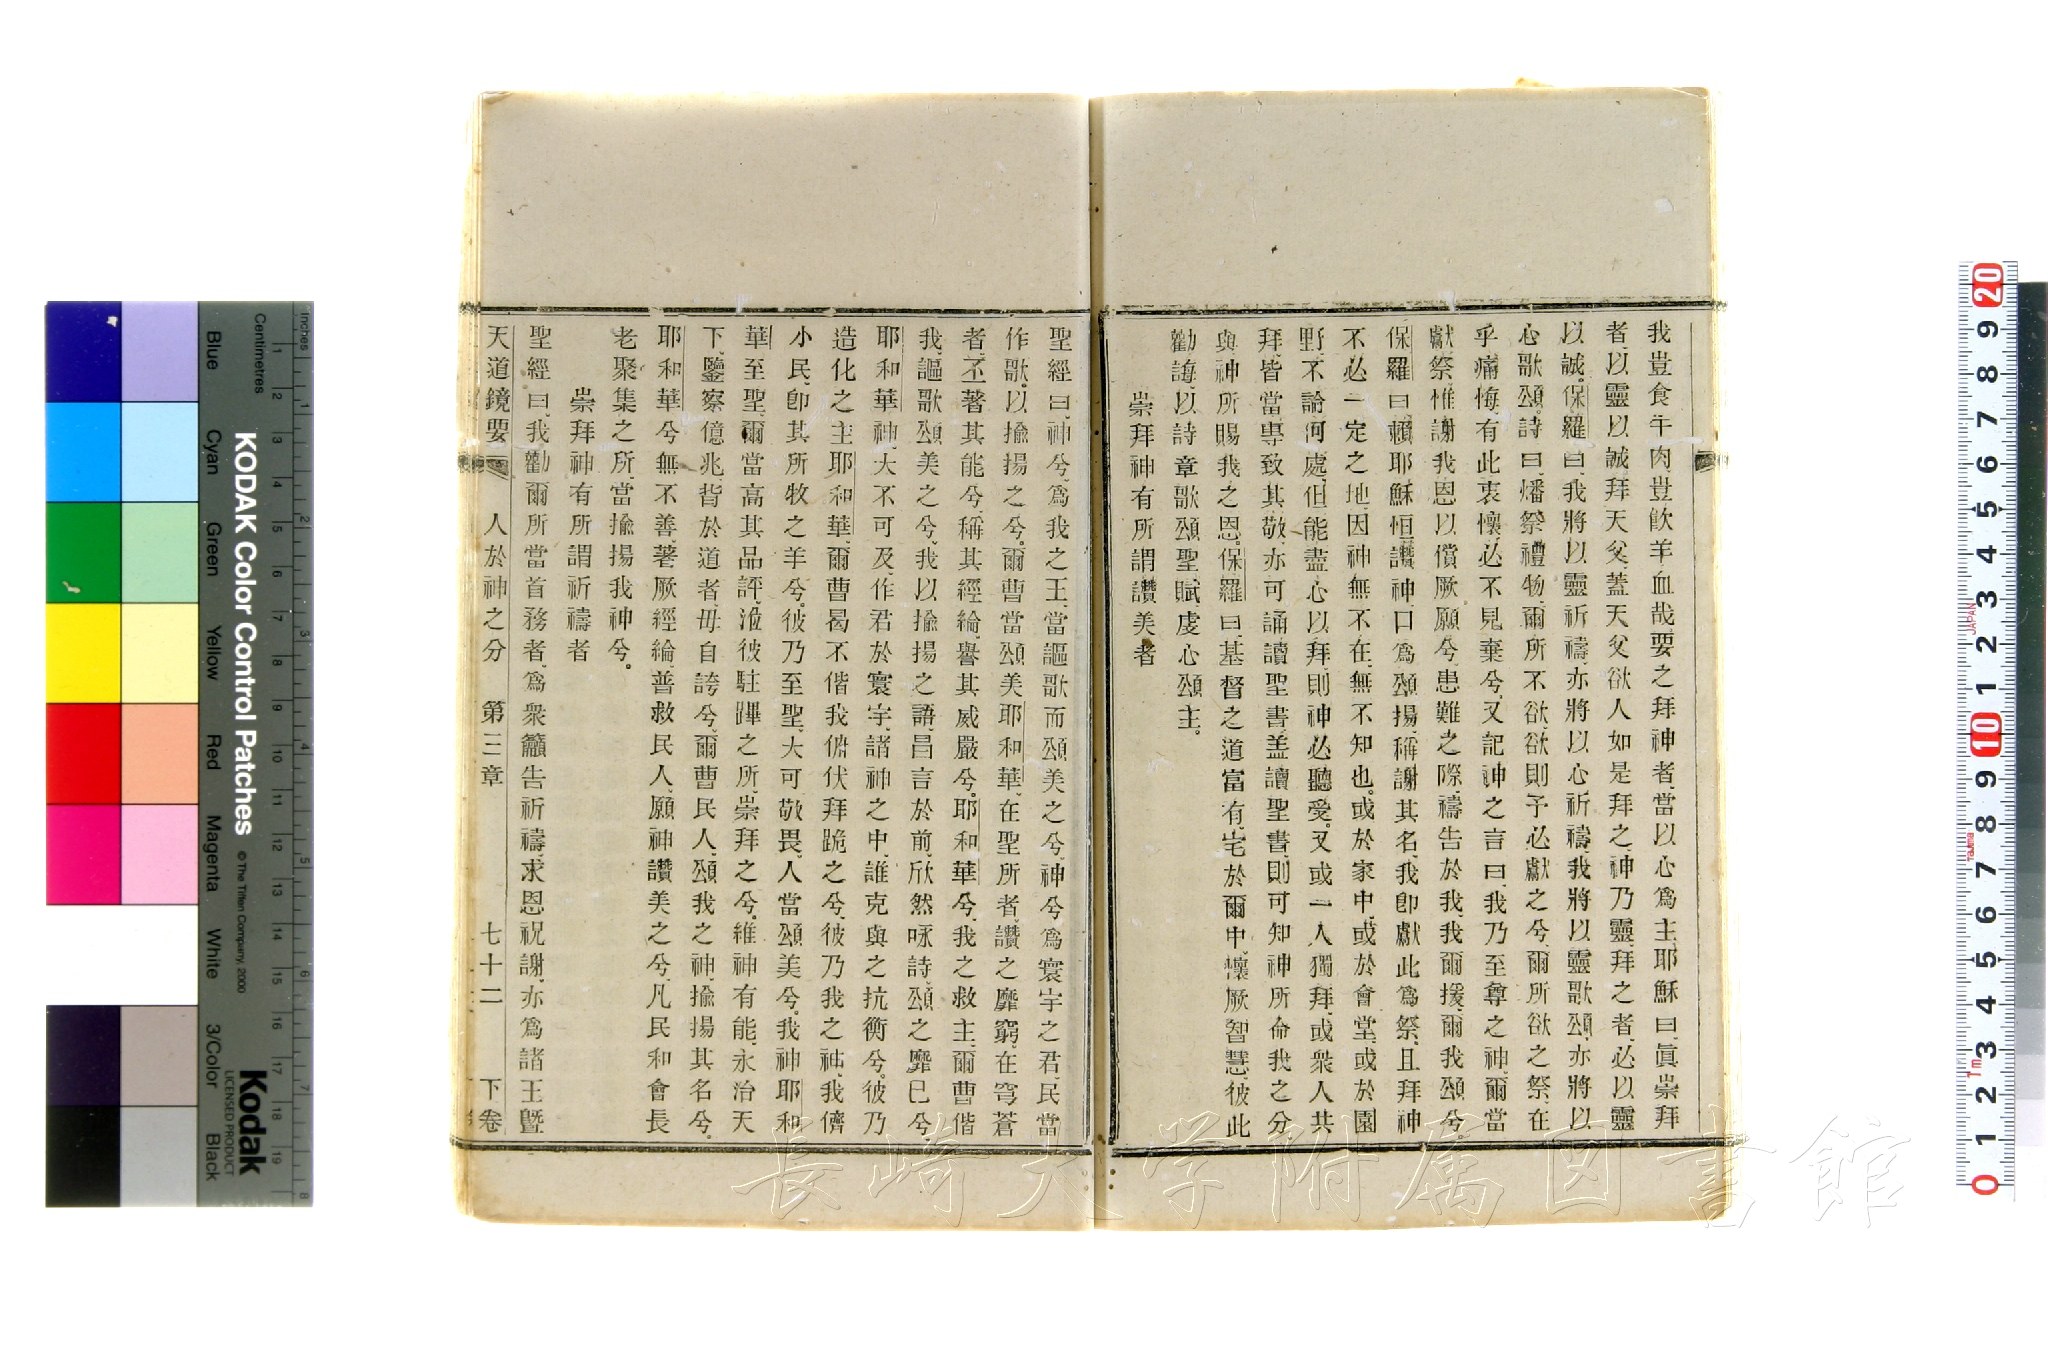 我豈食牛肉、豈飮羊血哉、要之拜神者、當以心爲主、耶穌曰、眞崇拜
者、以靈以誠拜天父、蓋天父欲人如是拜之、神乃靈、拜之者、必以靈
以誠。保羅曰、我將以靈祈禱、亦將以心祈禱、我將以靈歌頌、亦將以
心歌頌。詩曰、燔祭禮物、爾所不欲、欲則予必獻之兮、爾所欲之祭、在
乎痛悔、有此衷懷、必不見棄兮、又記神之言曰、我乃至尊之神、爾當
獻祭、惟謝我恩、以償厥願兮、患難之際、禱告於我、我爾援、爾我頌兮、
保羅曰、賴耶穌恒讚神、口爲頌揚、稱謝其名、我卽獻此爲祭、且拜神
不必一定之地、因神無不在、無不知也。或於家中、或於會堂、或於園
野、不論何處、但能盡心以拜、則神必聽受。又或一人獨拜、或衆人共
拜、皆當專致其敬、亦可誦讀聖書、盖讀聖書、則可知神所命我之分、
與神所賜我之恩。保羅曰、基督之道富有、宅於爾中、懷厥智慧、彼此
勸誨、以詩章歌頌聖賦、虔心頌主。
崇拜神有所謂讚美者
聖經曰、神兮、爲我之王、當謳歌而頌美之兮、神兮爲寰宇之君、民當
作歌、以揄揚之兮。爾曹當頌美耶和華、在聖所者、讚之靡窮、在穹蒼
者、丕著其能兮、稱其經綸、譽其威嚴兮。耶和華兮、我之救主、爾曹偕
我、謳歌頌美之兮、我以揄揚之語、昌言於前、欣然咏詩、頌之靡已兮。
耶和華神、大不可及、作君於寰宇、諸神之中、誰克與之抗衡兮。彼乃
造化之主耶和華、爾曹曷不偕我俯伏拜跪之兮、彼乃我之神、我儕
小民、卽其所牧之羊兮。彼乃至聖、大可敬畏、人當頌美兮。我神耶和
華至聖、爾當高其品評、涖彼駐蹕之所、崇拜之兮。維神有能、永治天
下、鑒察億兆、背於道者、毋自誇兮、爾曹民人、頌我之神、揄揚其名兮。
耶和華兮、無不善、著厥經綸、普救民人、願神讚美之兮、凡民和會、長
老聚集之所、當揄揚我神兮。
崇拜神有所謂祈禱者
聖經曰、我勸爾所當首務者、爲衆籲告祈禱、求恩祝謝、亦爲諸王曁
天道鏡要　人於神之分　第三章　七十二　下卷
長崎大学附属図書館
Inches
Centimetres
Blue Cyan Green Yellow Red Magenta White 3/Color Black
KODAK Color Control Patches
© The Tiffen Company, 2000
Kodak
LICENSED PRODUCT
20 9 8 7 6 5 4 3 2 1 10 9 8 7 6 5 4 3 2 1 0
JAPAN